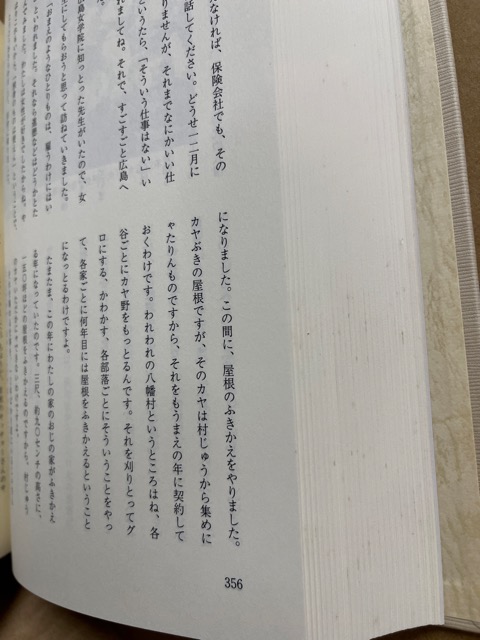 えなければ、保険会社でも、その
話してください。どうせ一二月に
りませんが、それまでなにかいい仕
というたら、「そういう仕事はない」い
れましてね。それで、すごすごと広島へ
広島女学院に知っとった先生がいたので、女
生にしてもらおうと思って訪ねていきました。
「おまえのようなひとりものは、雇うわけにはい
になりました。この間に、屋根のふきかえをやりました。
カヤぶきの屋根ですが、そのカヤは村じゅうから集めに
ゃたりんものですから、それをもうまえの年に契約して
おくわけです。われわれの八幡村というところはね、各
谷ごとにカヤ野をもっとるんです。それを刈りとってグ
ロにする、かわかす、各部落ごとにそういうことをやっ
て、各家ごとに何年目には屋根をふきかえるということ
になっとるわけですよ。
たまたま、この年にわたしの家のおじの家がふきかえ
る年になっていたのです。三尺、約九〇センチの高さに、
356